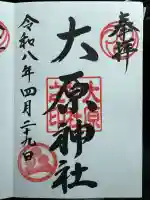 奉拝
大原神社
令和八年四月二十九日